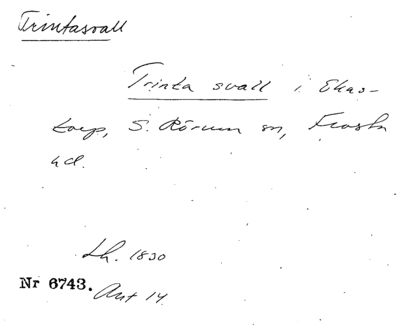 Trintasvall
Trinta svall i Ekas-
torp, S. Rörum sn, Frosta
hd.
Lh. 1830
Nr 6743. Ant 14